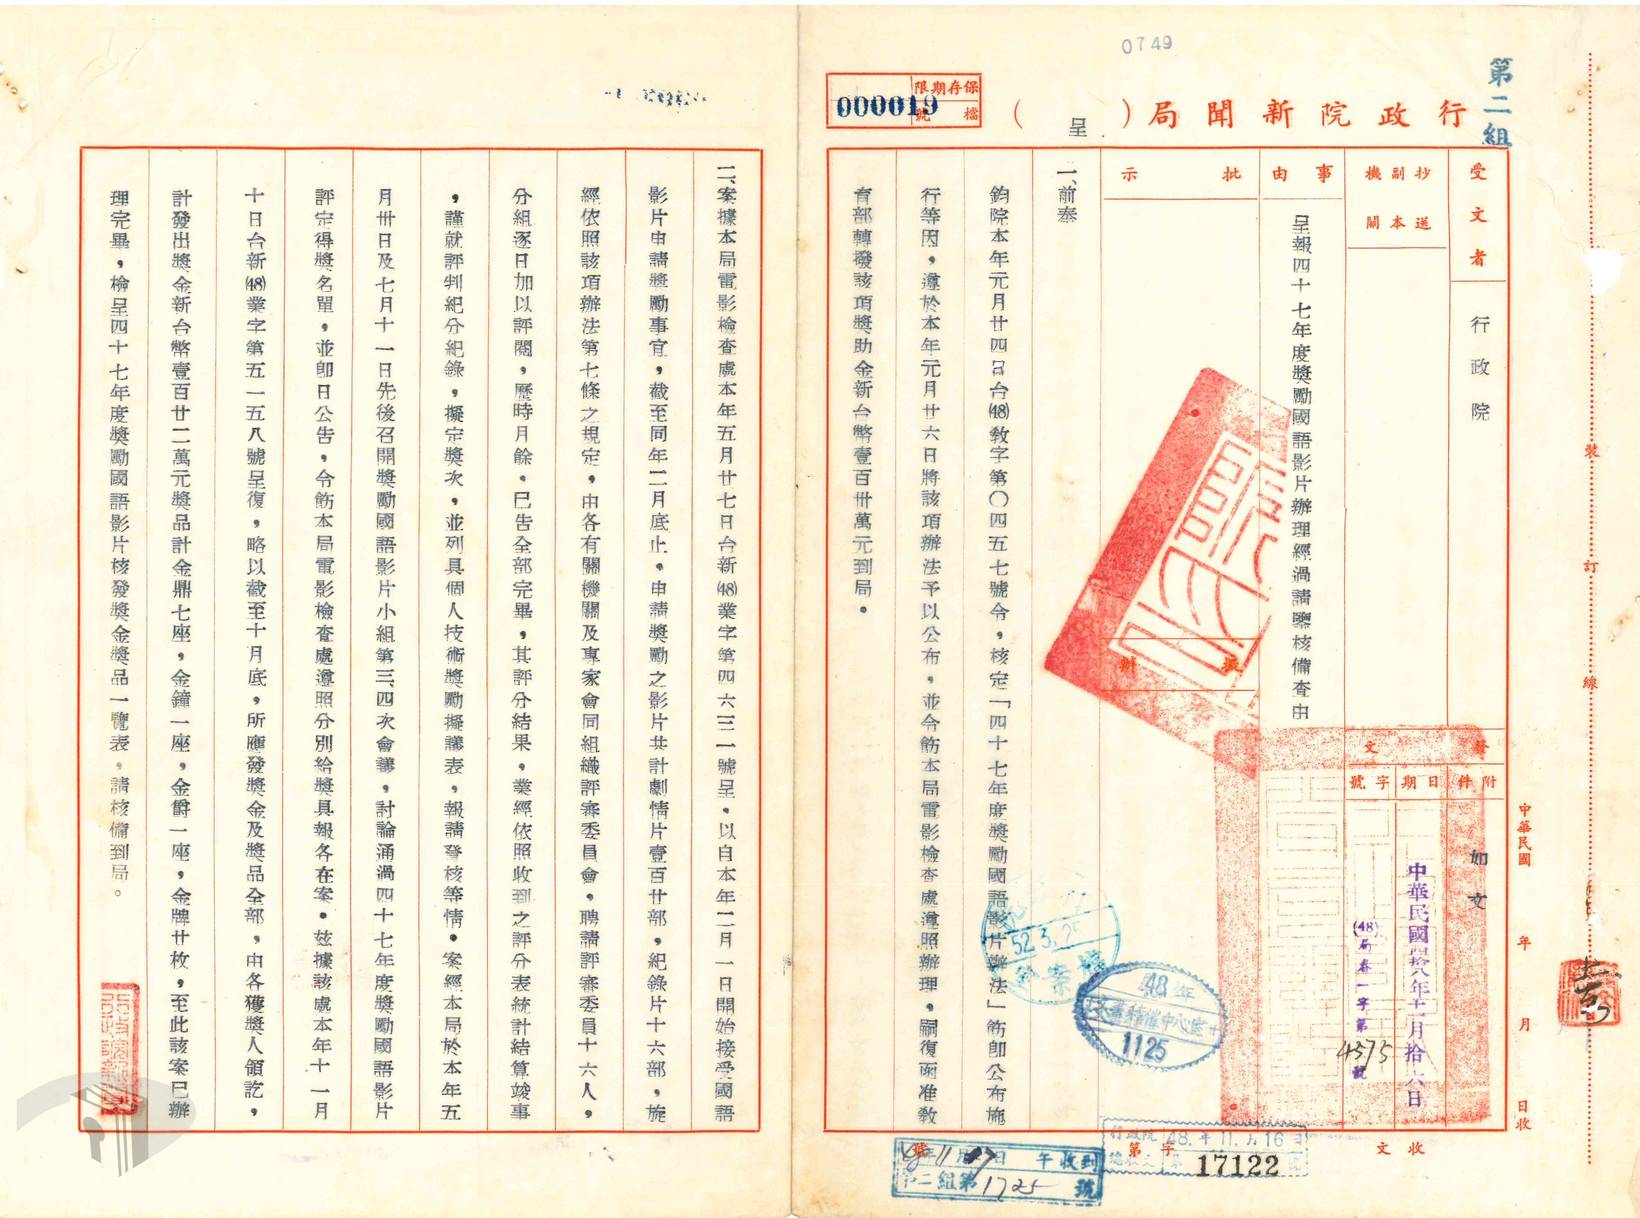 0749
第二組
保存期限
檔號
000019
行政院新聞局(呈)
受文者
行政院
抄送副本機關
事由
呈報四十七年度獎勵國語影片辦理經過請鑒核備查由
批示
擬辦
發文
附件
如文
日期
中華民國肆拾八年十一月拾六日
字號
(48)局春一字第4375號
一、前奉
鈞院本年元月廿四日台(48)教字第〇四五七號令,核定「四十七年度獎勵國語影片辦法」飭即公布施
行等因,遵於本年元月廿六日將該項辦法予以公布,並令飭本局電影檢查處遵照辦理,嗣復函准教
育部轉撥該項獎助金新台幣壹百卅萬元到局。
二、案據本局電影檢查處本年五月廿七日台新(48)業字第四六三一號呈,以自本年二月一日開始接受國語
影片申請獎勵事宜,截至同年二月底止。申請獎勵之影片共計劇情片壹百廿部,紀錄片十六部,旋
經依照該項辦法第七條之規定,由各有關機關及專家會同組織評審委員會,聘請評審委員十六人,
分組逐日加以評閱,歷時月餘,已告全部完畢,其評分結果,業經依照收到之評分表統計結算竣事
,謹就評判紀分紀錄,擬定獎次,並列具個人技術獎勵擬議表,報請發核等情。案經本局於本年五
月卅日及七月十一日先後召開獎勵國語影片小組第三四次會議,討論通過四十七年度獎勵國語影片
評定得獎名單,並即日公告,令飭本局電影檢查處遵照分別給獎具報各在案。茲據該處本年十一月
十日台新(48)業字第五一五八號呈復,略以截至十月底,所應發獎金及獎品全部,由各獲獎人領訖,
計發出獎金新台幣壹百廿二萬元獎品計金鼎七座,金鐘一座,金爵一座,金牌廿枚,至此該案已辦
理完畢,檢呈四十七年度獎勵國語影片核發獎金獎品一覽表,請核備到局。
中華民國 年 月 日收
收文 字第 號
行政院 48.年11.月16日
17122
48年11月17日 午收到
第二組第1725號
52.3.25
檔案
48年
1125
裝訂線